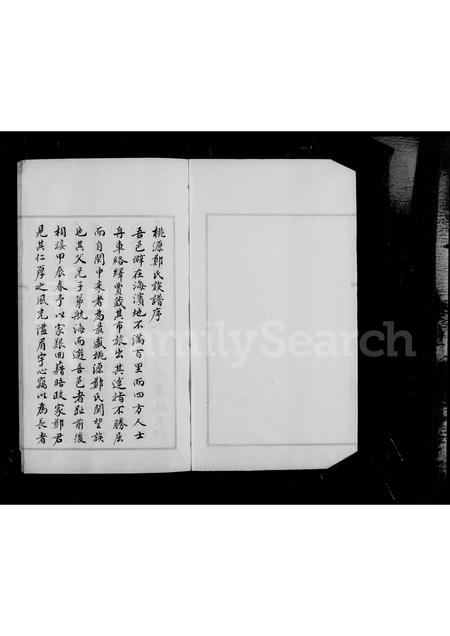 桃源鄭氏族譜序
吾邑僻在海濱地不滿百里而四方人士
舟車絡繹賈藏其市旅出其途指不勝屈
而自閩中來者為最盛桃源鄭氏閩望族
也其父兄子弟航海而遊吾邑者趾前後
相接甲辰春予以家艱回籍時政家鄭君
見其仁厚之風充溢眉宇心竊以為長者
FamilySearch